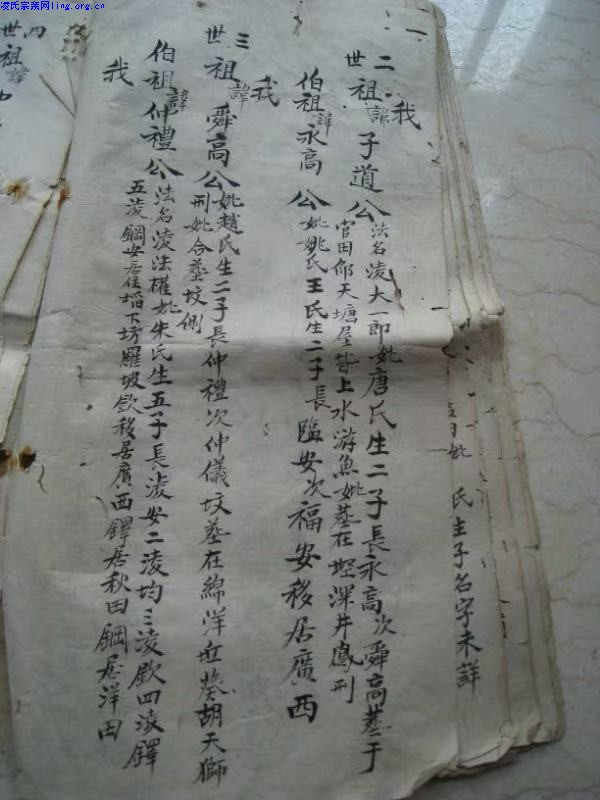 凌氏宗亲网ling.org.cn
氏生子名字未詳
我
二世祖諱子道公法名凌大一郎妣唐氏生二子長永高次舜高葬于
官田邨天塘屋背上水游魚妣葬在塅深井鳳形
伯祖諱永高公妣姚氏王氏生二子長臨安次福安移居廣西
我
三世祖諱舜高公妣趙氏生二子長仲禮次仲儀墳葬在綿洋
胡天獅
刑妣合葬墳側
伯祖諱仲禮公法名凌法權妣朱氏生五子長凌安二凌均三凌欽四凌鐸
五凌鋼安居住稻下坊羅坡欽移居廣西鐸居秋田鋼居洋田
我
四世祖諱